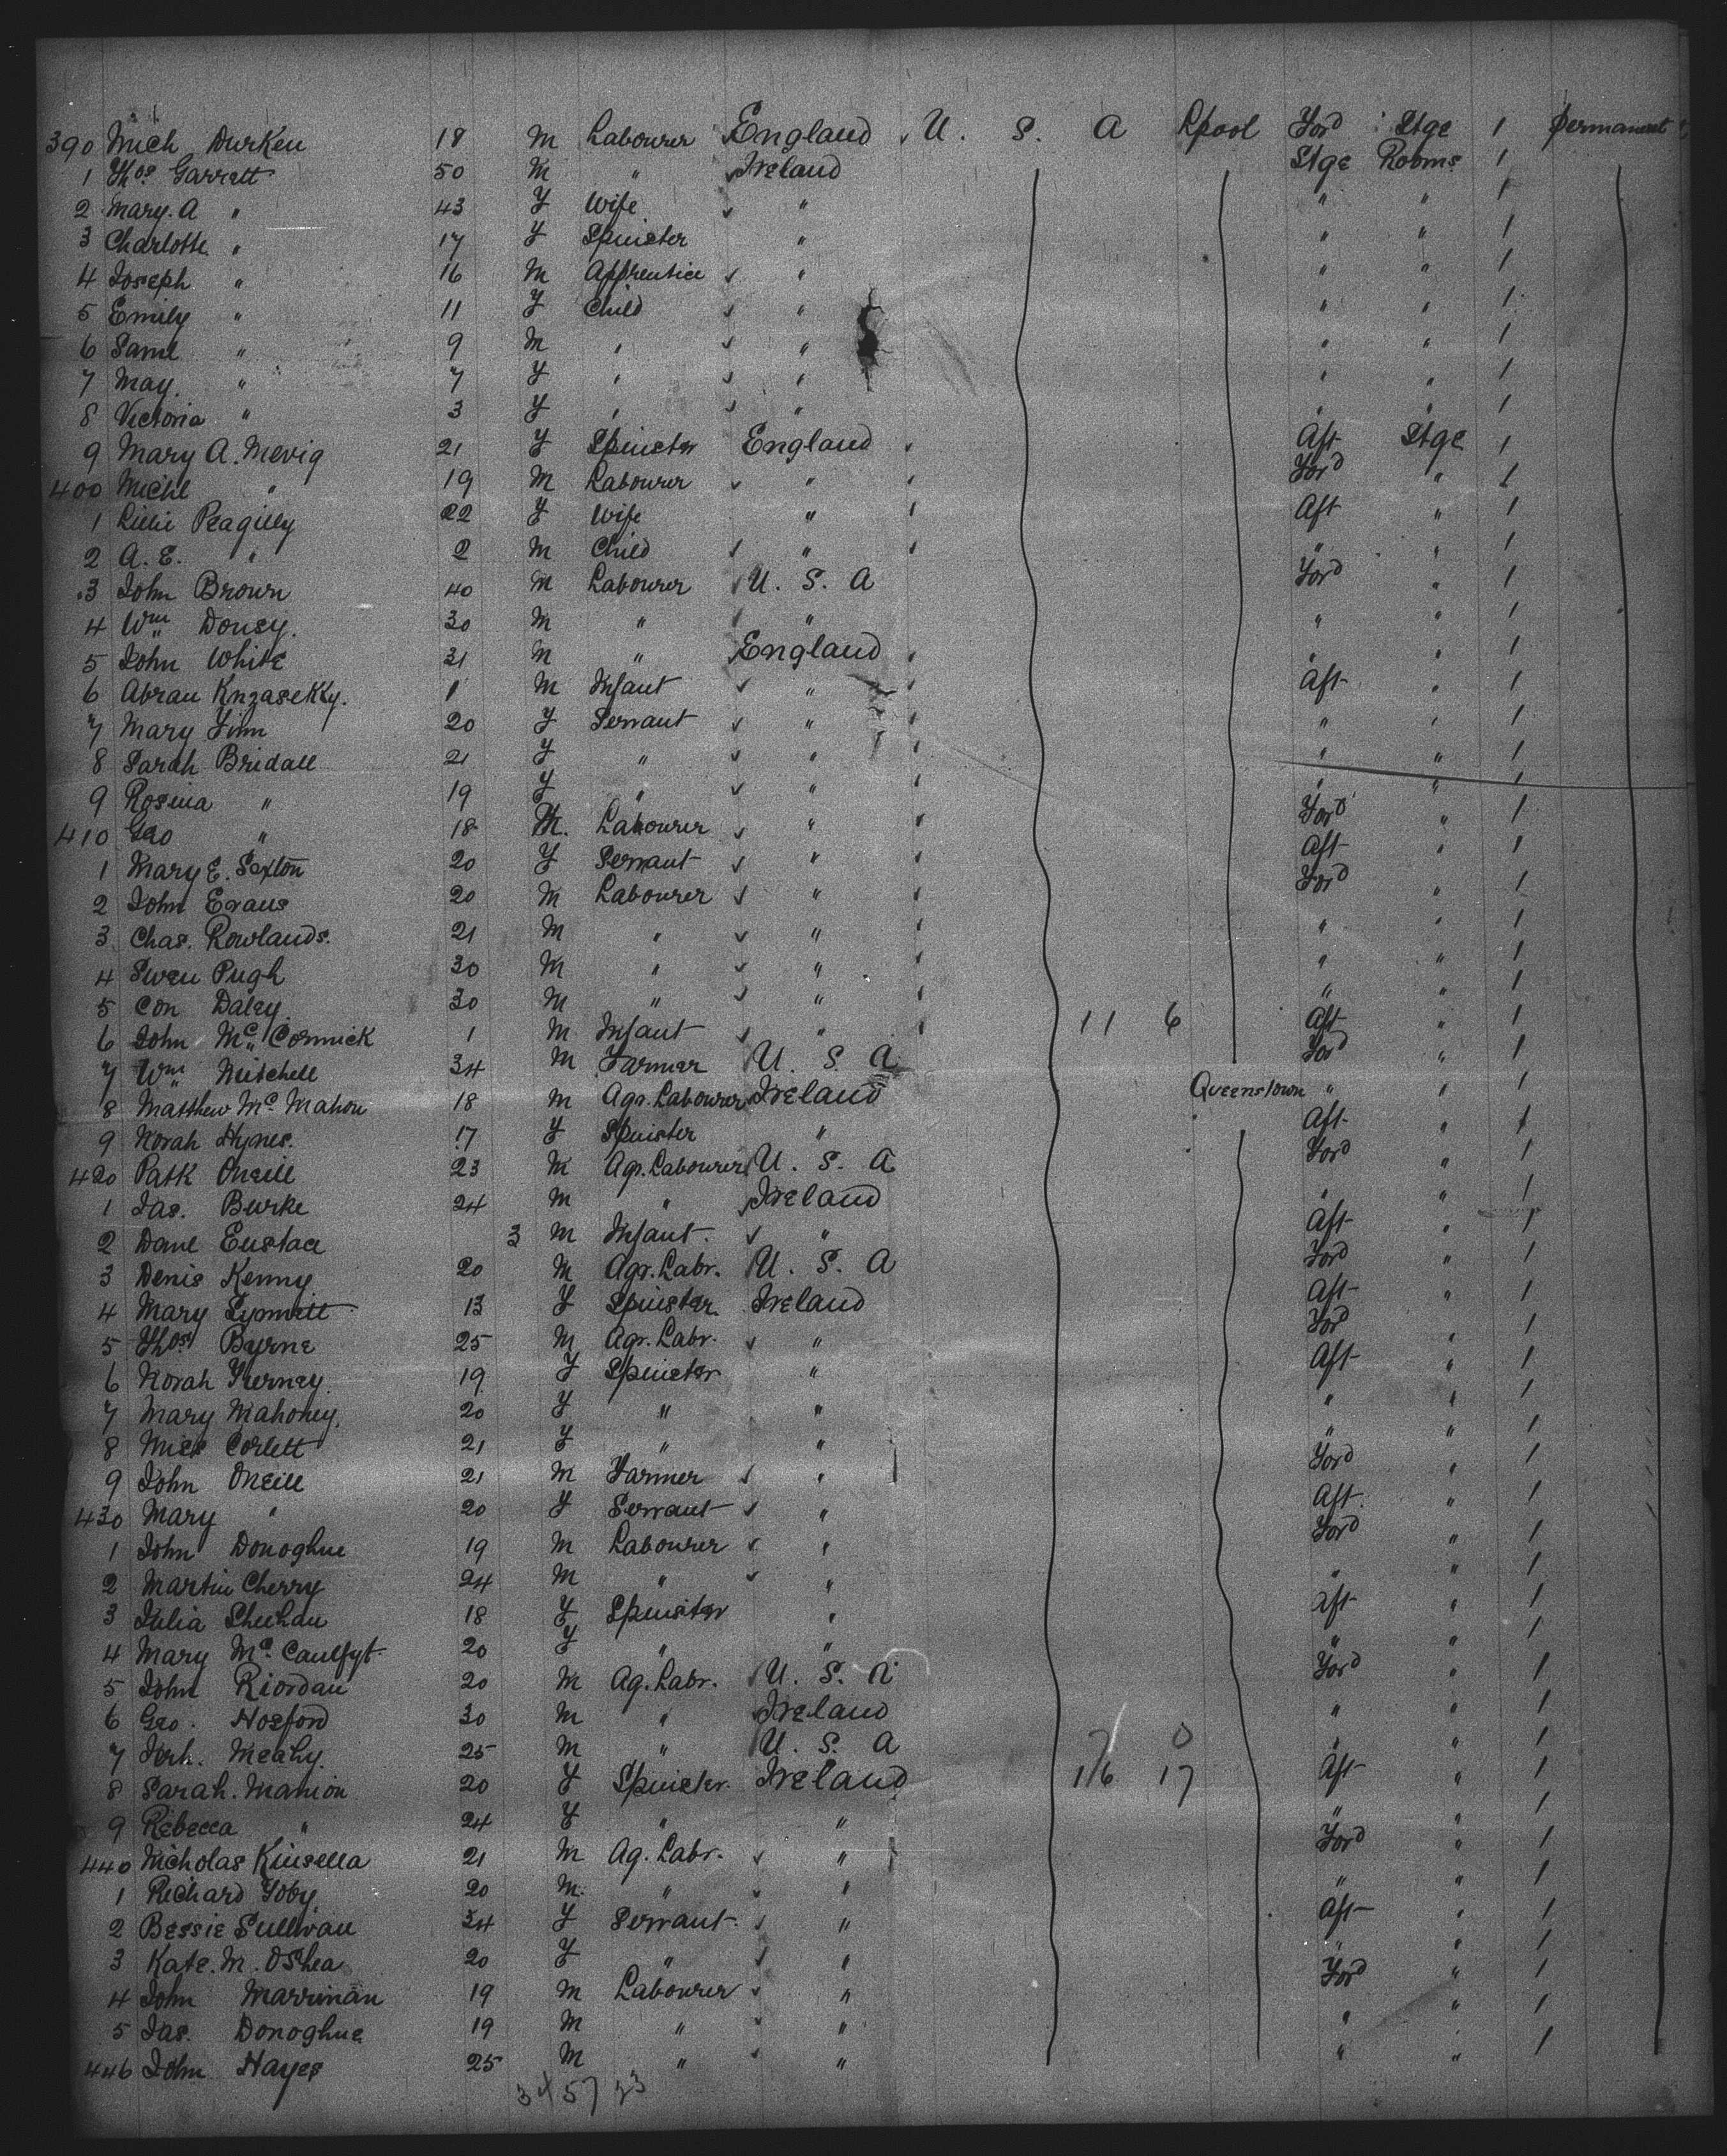 390 Mich Durken 18 M Labourer England U. S. A Lpool Ford Stge 1 Permanent
1 Thos Garrett 50 M " Ireland Stge Rooms 1
2 Mary. A " 43 F Wife " " " 1
3 Charlotte " 17 F Spinster " " " 1
4 Joseph " 16 M Apprentice " " " 1
5 Emily " 11 F Child " " " 1
6 Saml " 9 M " " " " 1
7 May " 7 F " " " " 1
8 Victoria " 3 F " " " " 1
9 Mary A. Mevig 21 F Spinster England Aft Stge 1
400 Michl " 19 M Labourer " Ford " 1
1 Lillie Peagilly 22 F Wife " Aft " 1
2 A. E. " 2 M Child " " " 1
3 John Brown 40 M Labourer U. S. A Ford " 1
4 Wm Dousy. 30 M " " " " 1
5 John White 31 M " England " " 1
6 Abrau Knzasekky. 1 M Infant " Aft " 1
7 Mary Finn 20 F Servant " " " 1
8 Sarah Bridall 21 F " " " " 1
9 Rosina " 19 F " " " " 1
410 Geo " 18 M. Labourer " Ford " 1
1 Mary E. Sexton 20 F Servant " Aft " 1
2 John Evans 20 M Labourer " Ford " 1
3 Chas. Rowlands. 21 M " " " " 1
4 Swen Pugh 30 M " " " " 1
5 Con Daley 30 M " " " " 1
6 John McCormick 1 M Infant " 11 6 Aft " 1
7 Wm Mitchell 34 M Farmer U. S. A Ford " 1
8 Matthew McMahon 18 M Agr. Labourer Ireland Queenstown " " 1
9 Norah Hynes. 17 F Spinster " Aft " 1
420 Patk ONeill 23 M Agr. Labourer U. S. A Ford " 1
1 Jas. Burke 24 M " Ireland " " 1
2 Danl Eustace 3 M Infant. " Aft " 1
3 Denis Kenny 20 M Agr. Labr. U. S. A Ford " 1
4 Mary Synnett 13 F Spinster Ireland Aft " 1
5 Thos Byrne 25 M Agr. Labr. " Ford " 1
6 Norah Tierney 19 F Spinster " Aft " 1
7 Mary Mahoney. 20 F " " " " 1
8 Miss Corlett 21 F " " " " 1
9 John ONeill 21 M Farmer " Ford " 1
430 Mary " 20 F Servant " Aft " 1
1 John Donoghue 19 M Labourer " Ford " 1
2 Martin Cherry 24 M " " " " 1
3 Julia Sheehan 18 F Spinster " Aft " 1
4 Mary McCaulfyt 20 F " " " " 1
5 John Riordan 20 M Ag. Labr. U. S. A Ford " 1
6 Geo. Hosford 30 M " Ireland " " 1
7 Jerh. Meahy. 25 M " U. S. A 17 0 " " 1
8 Sarah. Manion 20 F Spinster. Ireland 116 17 Aft " 1
9 Rebecca " 24 F " " " " 1
440 Nicholas Kinsella 21 M Ag. Labr. " Ford " 1
1 Richard Foby 20 M. " " " " 1
2 Bessie Sullivan 34 F Servant. " Aft " 1
3 Kate. M. OShea 20 F " " " " 1
4 John Marrinan 19 M Labourer " Ford " 1
5 Jas. Donoghue 19 M " " " " 1
446 John Hayes 25 M " " " " 1